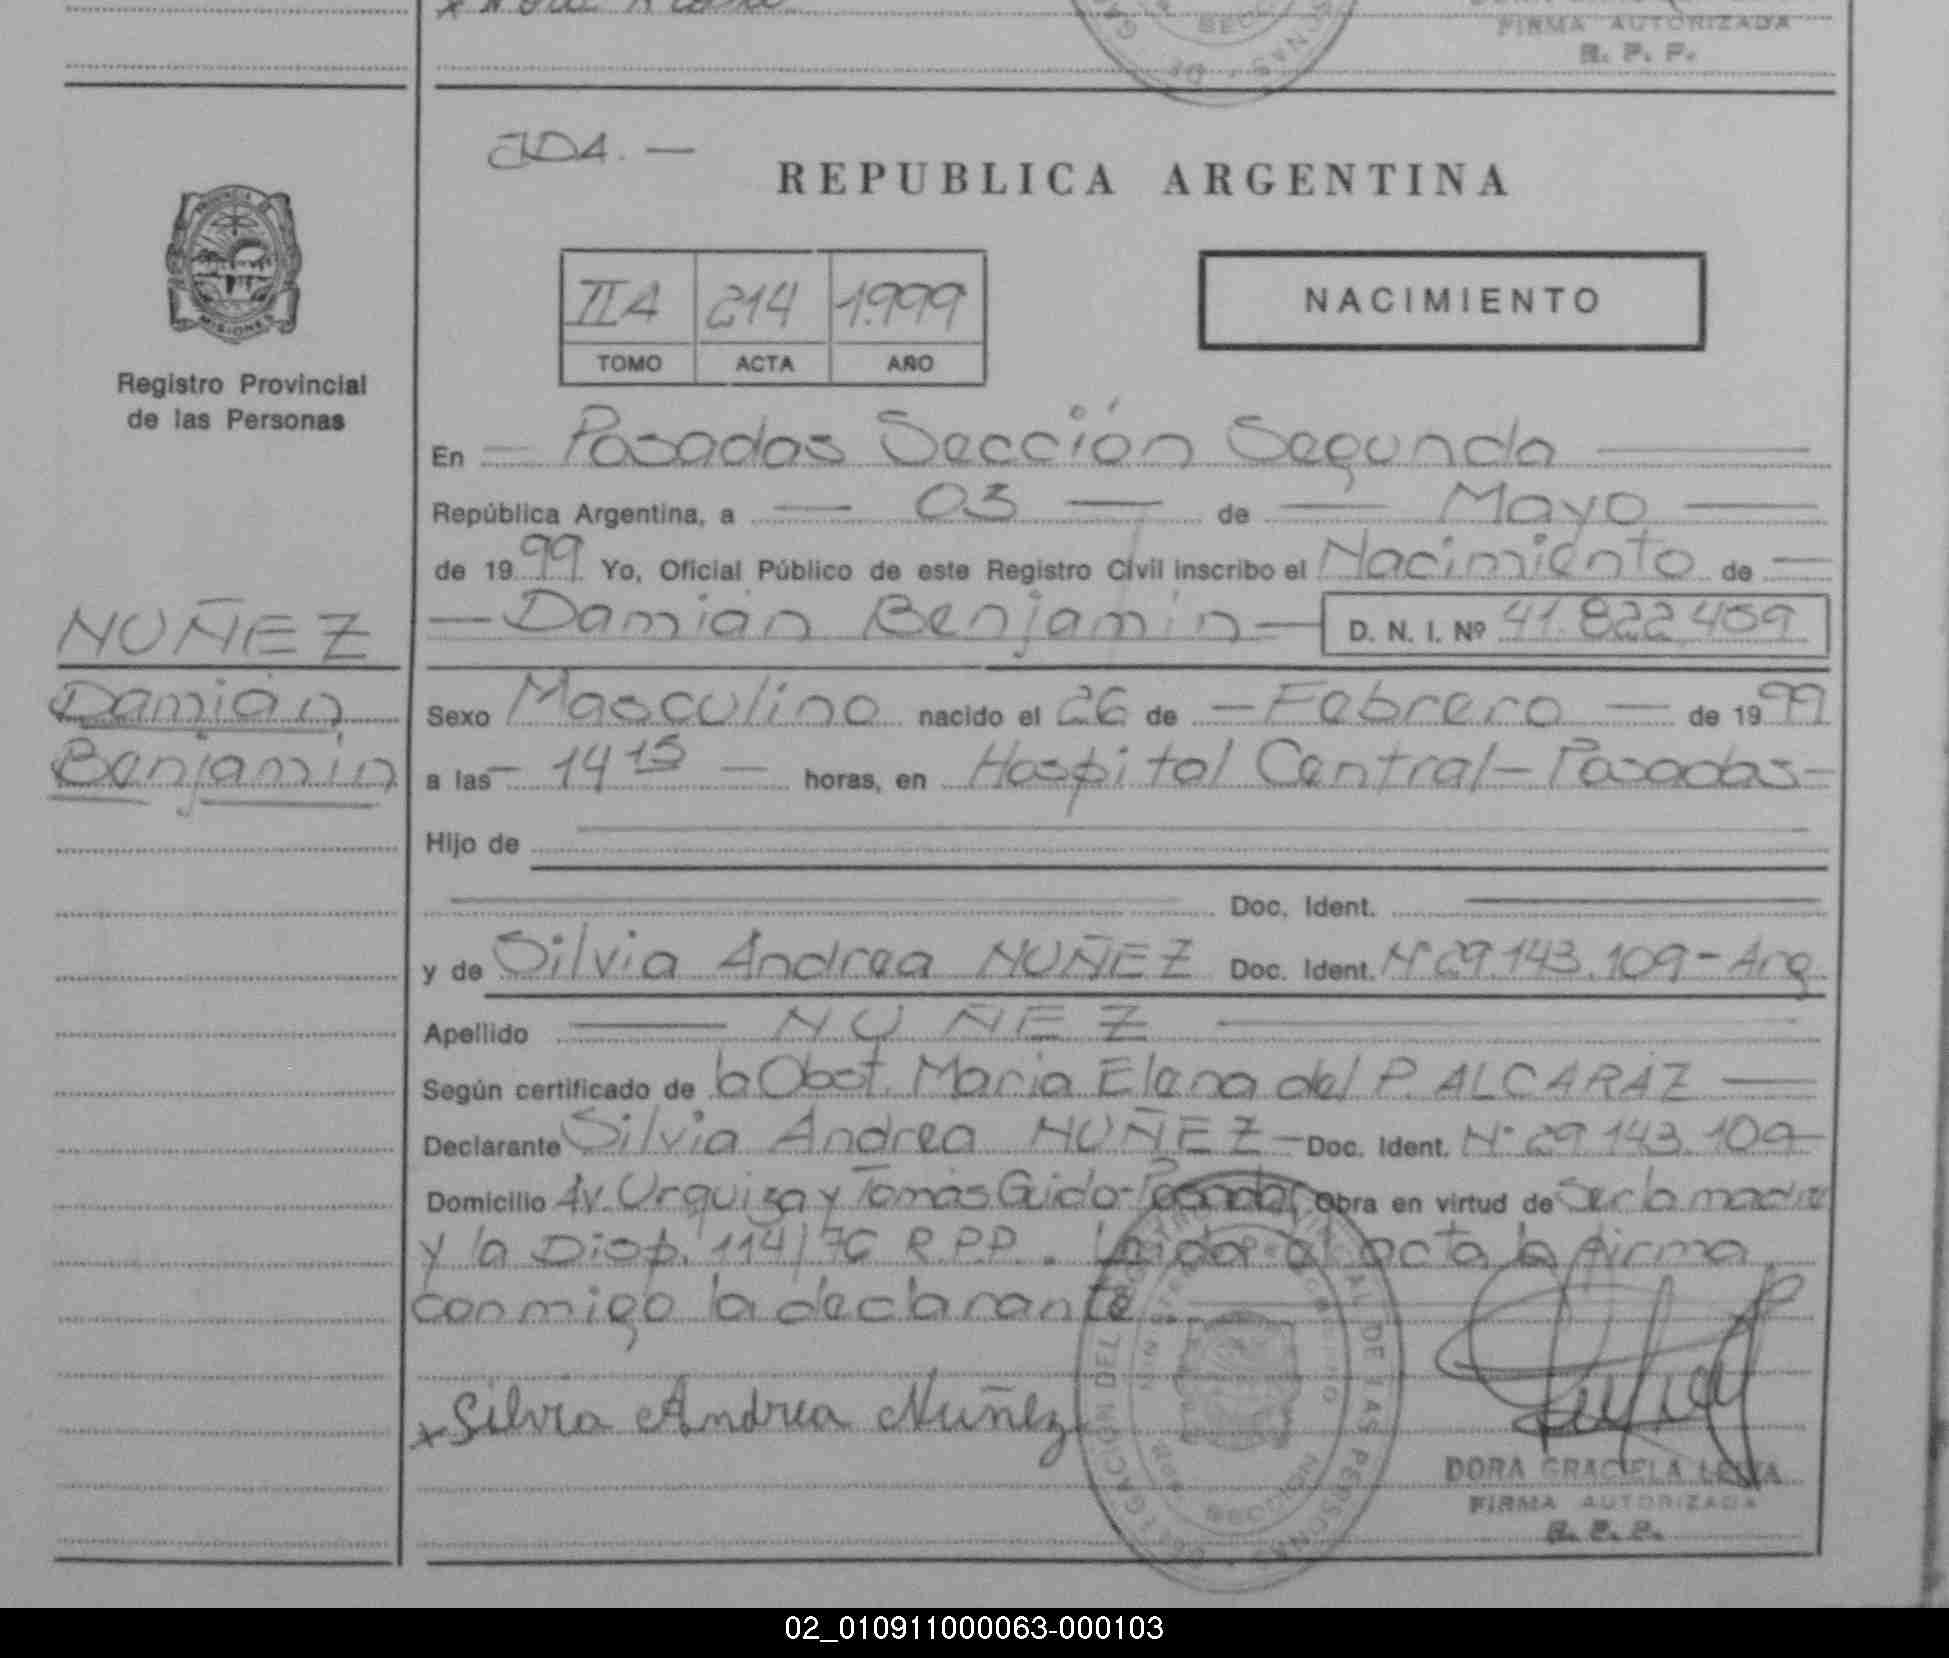 FIRMA AUTORIZADA
R. P. P.
REPUBLICA ARGENTINA
IIA 214 1.999
TOMO ACTA AÑO
NACIMIENTO
MISIONES
Registro Provincial
de las Personas
En — Posadas Sección Segunda —
República Argentina, a — 03 — de — Mayo —
de 1999 Yo, Oficial Público de este Registro Civil inscribo el Nacimiento de —
— Damián Benjamin — D. N. I. Nº 41.822.459
NUÑEZ
Damián
Benjamin
Sexo Masculino nacido el 26 de — Febrero — de 1999
a las — 14 15 — horas, en Hospital Central - Posadas -
Hijo de
Doc. Ident.
y de Silvia Andrea NUÑEZ Doc. Ident. Nº 29.143.109 - Arg.
Apellido — NUÑEZ —
Según certificado de la Obst. Maria Elena del P. ALCARAZ —
Declarante Silvia Andrea NUÑEZ — Doc. Ident. Nº 29.143.109 -
Domicilio Av. Urquiza y Tomás Guido - Posadas Obra en virtud de Ser la madre
y la Disp. 114/76 R.P.P. . Leida el acta la firma
conmigo la declarante
x Silvia Andrea Nuñez
DORA GRACIELA
FIRMA AUTORIZADA
R. P. P.
02_010911000063-000103